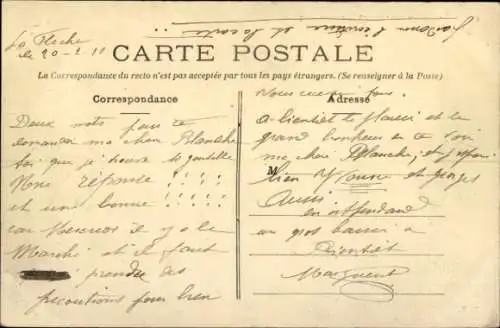 La Fleche
le 20-2-11
CARTE POSTALE
La Correspondance du recto n'est pas acceptée par tous les pays étrangers. (Se renseigner à la Poste)
Correspondance
Deux mots pour te
demander ma chère Blanche
toi que je trouve si gentille
Une réponse ! ! ! !
et une bonne ! ! ! !
car Mercredi il y a le
Marché et il faut
prendre des
précautions pour bien
Adresse
vous recevoir
à bientôt le plaisir et le
grand bonheur de te voir
ma chère Blanche, et
M
bien Yvonne et Georges
Aussi
en attendant
un gros baiser à
Bientôt
Marguerite